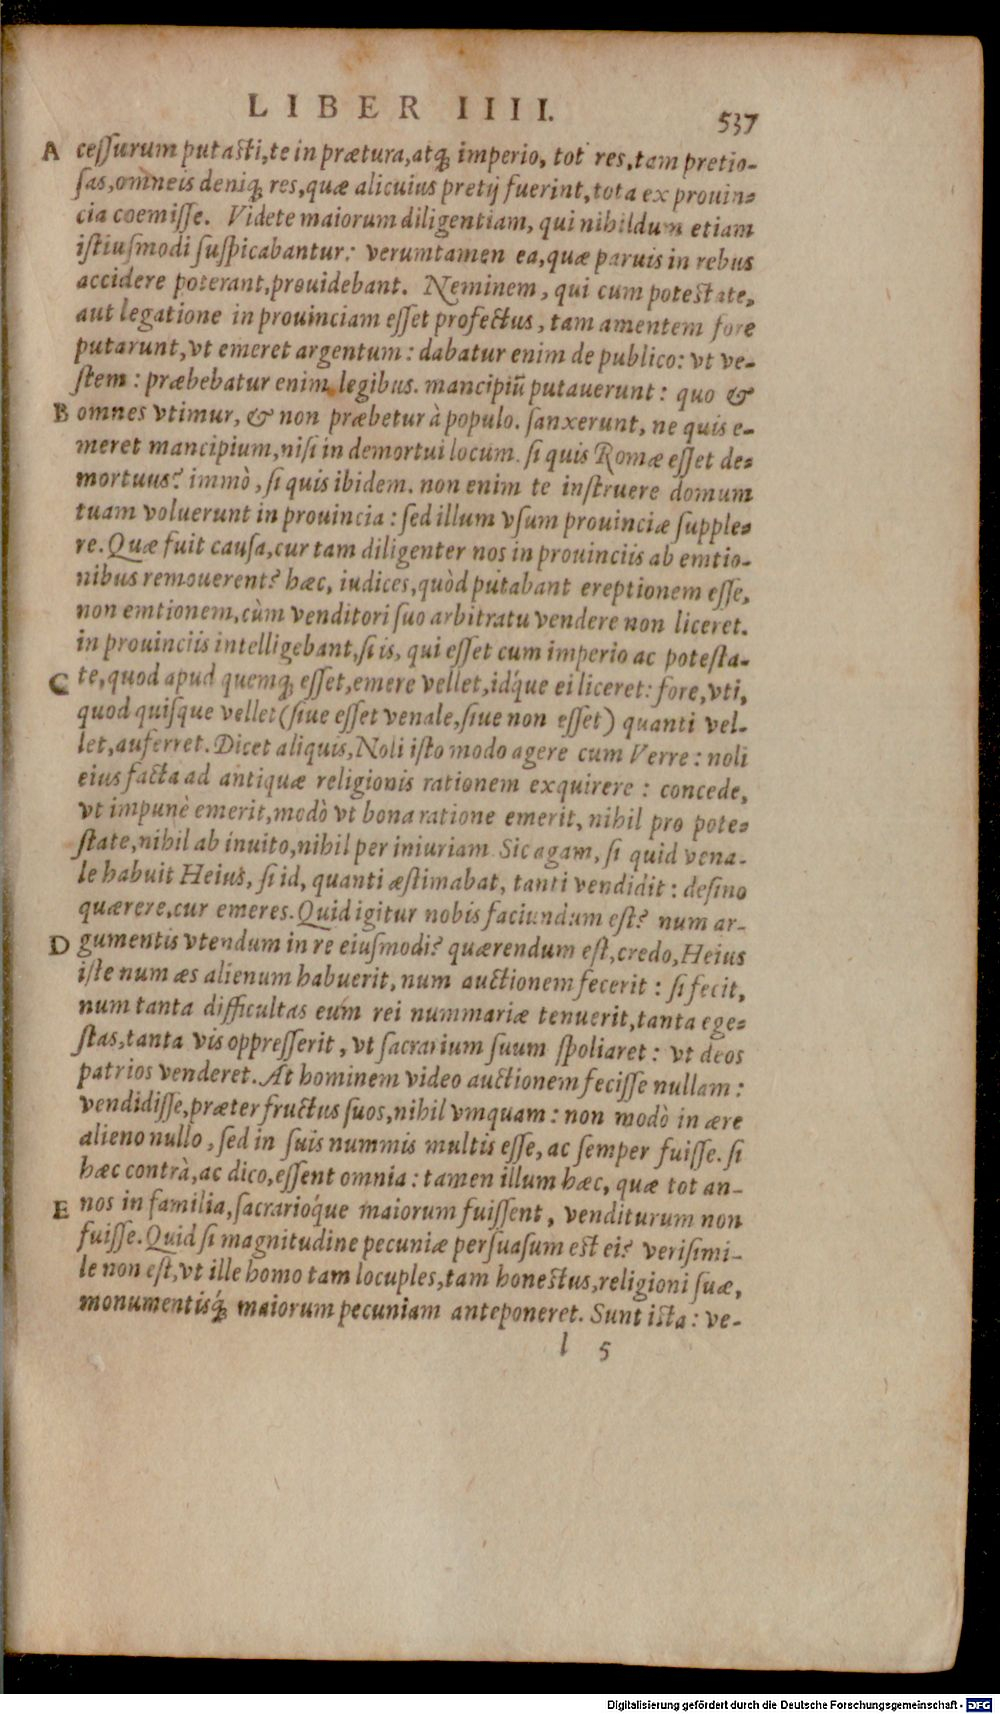 LIBER IIII. 537
A cessurum putasti, te in prætura, atq; imperio, tot res, tam pretio-
sas, omneis deniq; res, quæ alicuius pretij fuerint, tota ex prouin-
cia coemisse. Videte maiorum diligentiam, qui nihildum etiam
istiusmodi suspicabantur: verumtamen ea, quæ paruis in rebus
accidere poterant, prouidebant. Neminem, qui cum potestate,
aut legatione in prouinciam esset profectus, tam amentem fore
putarunt, vt emeret argentum: dabatur enim de publico: vt ve-
stem: præbebatur enim legibus. mancipiū putauerunt: quo &
B omnes vtimur, & non præbetur à populo. sanxerunt, ne quis e-
meret mancipium, nisi in demortui locum. si quis Romæ esset de-
mortuus? immò, si quis ibidem. non enim te instruere domum
tuam voluerunt in prouincia: sed illum vsum prouinciæ supple-
re. Quæ fuit causa, cur tam diligenter nos in prouinciis ab emtio-
nibus remouerent? hæc, iudices, quòd putabant ereptionem esse,
non emtionem, cùm venditori suo arbitratu vendere non liceret.
in prouinciis intelligebant, si is, qui esset cum imperio ac potesta-
C te, quod apud quemq; esset, emere vellet, idq́ue ei liceret: fore, vti,
quod quisque vellet (siue esset venale, siue non esset) quanti vel-
let, auferret. Dicet aliquis, Noli isto modo agere cum Verre: noli
eius facta ad antiquæ religionis rationem exquirere: concede,
vt impunè emerit, modò vt bona ratione emerit, nihil pro pote-
state, nihil ab inuito, nihil per iniuriam. Sic agam, si quid vena-
le habuit Heius, si id, quanti æstimabat, tanti vendidit: desino
quærere, cur emeres. Quid igitur nobis faciundum est? num ar-
D gumentis vtendum in re eiusmodi? quærendum est, credo, Heius
iste num æs alienum habuerit, num auctionem fecerit: si fecit,
num tanta difficultas eum rei nummariæ tenuerit, tanta ege-
stas, tanta vis oppresserit, vt sacrarium suum spoliaret: vt deos
patrios venderet. At hominem video auctionem fecisse nullam:
vendidisse, præter fructus suos, nihil vmquam: non modò in ære
alieno nullo, sed in suis nummis multis esse, ac semper fuisse. si
hæc contrà, ac dico, essent omnia: tamen illum hæc, quæ tot an-
E nos in familia, sacrarioq́ue maiorum fuissent, venditurum non
fuisse. Quid si magnitudine pecuniæ persuasum est ei? verisimi-
le non est, vt ille homo tam locuples, tam honestus, religioni suæ,
monumentisq́; maiorum pecuniam anteponeret. Sunt ista: ve-
l 5
Digitalisierung gefördert durch die Deutsche Forschungsgemeinschaft - DFG